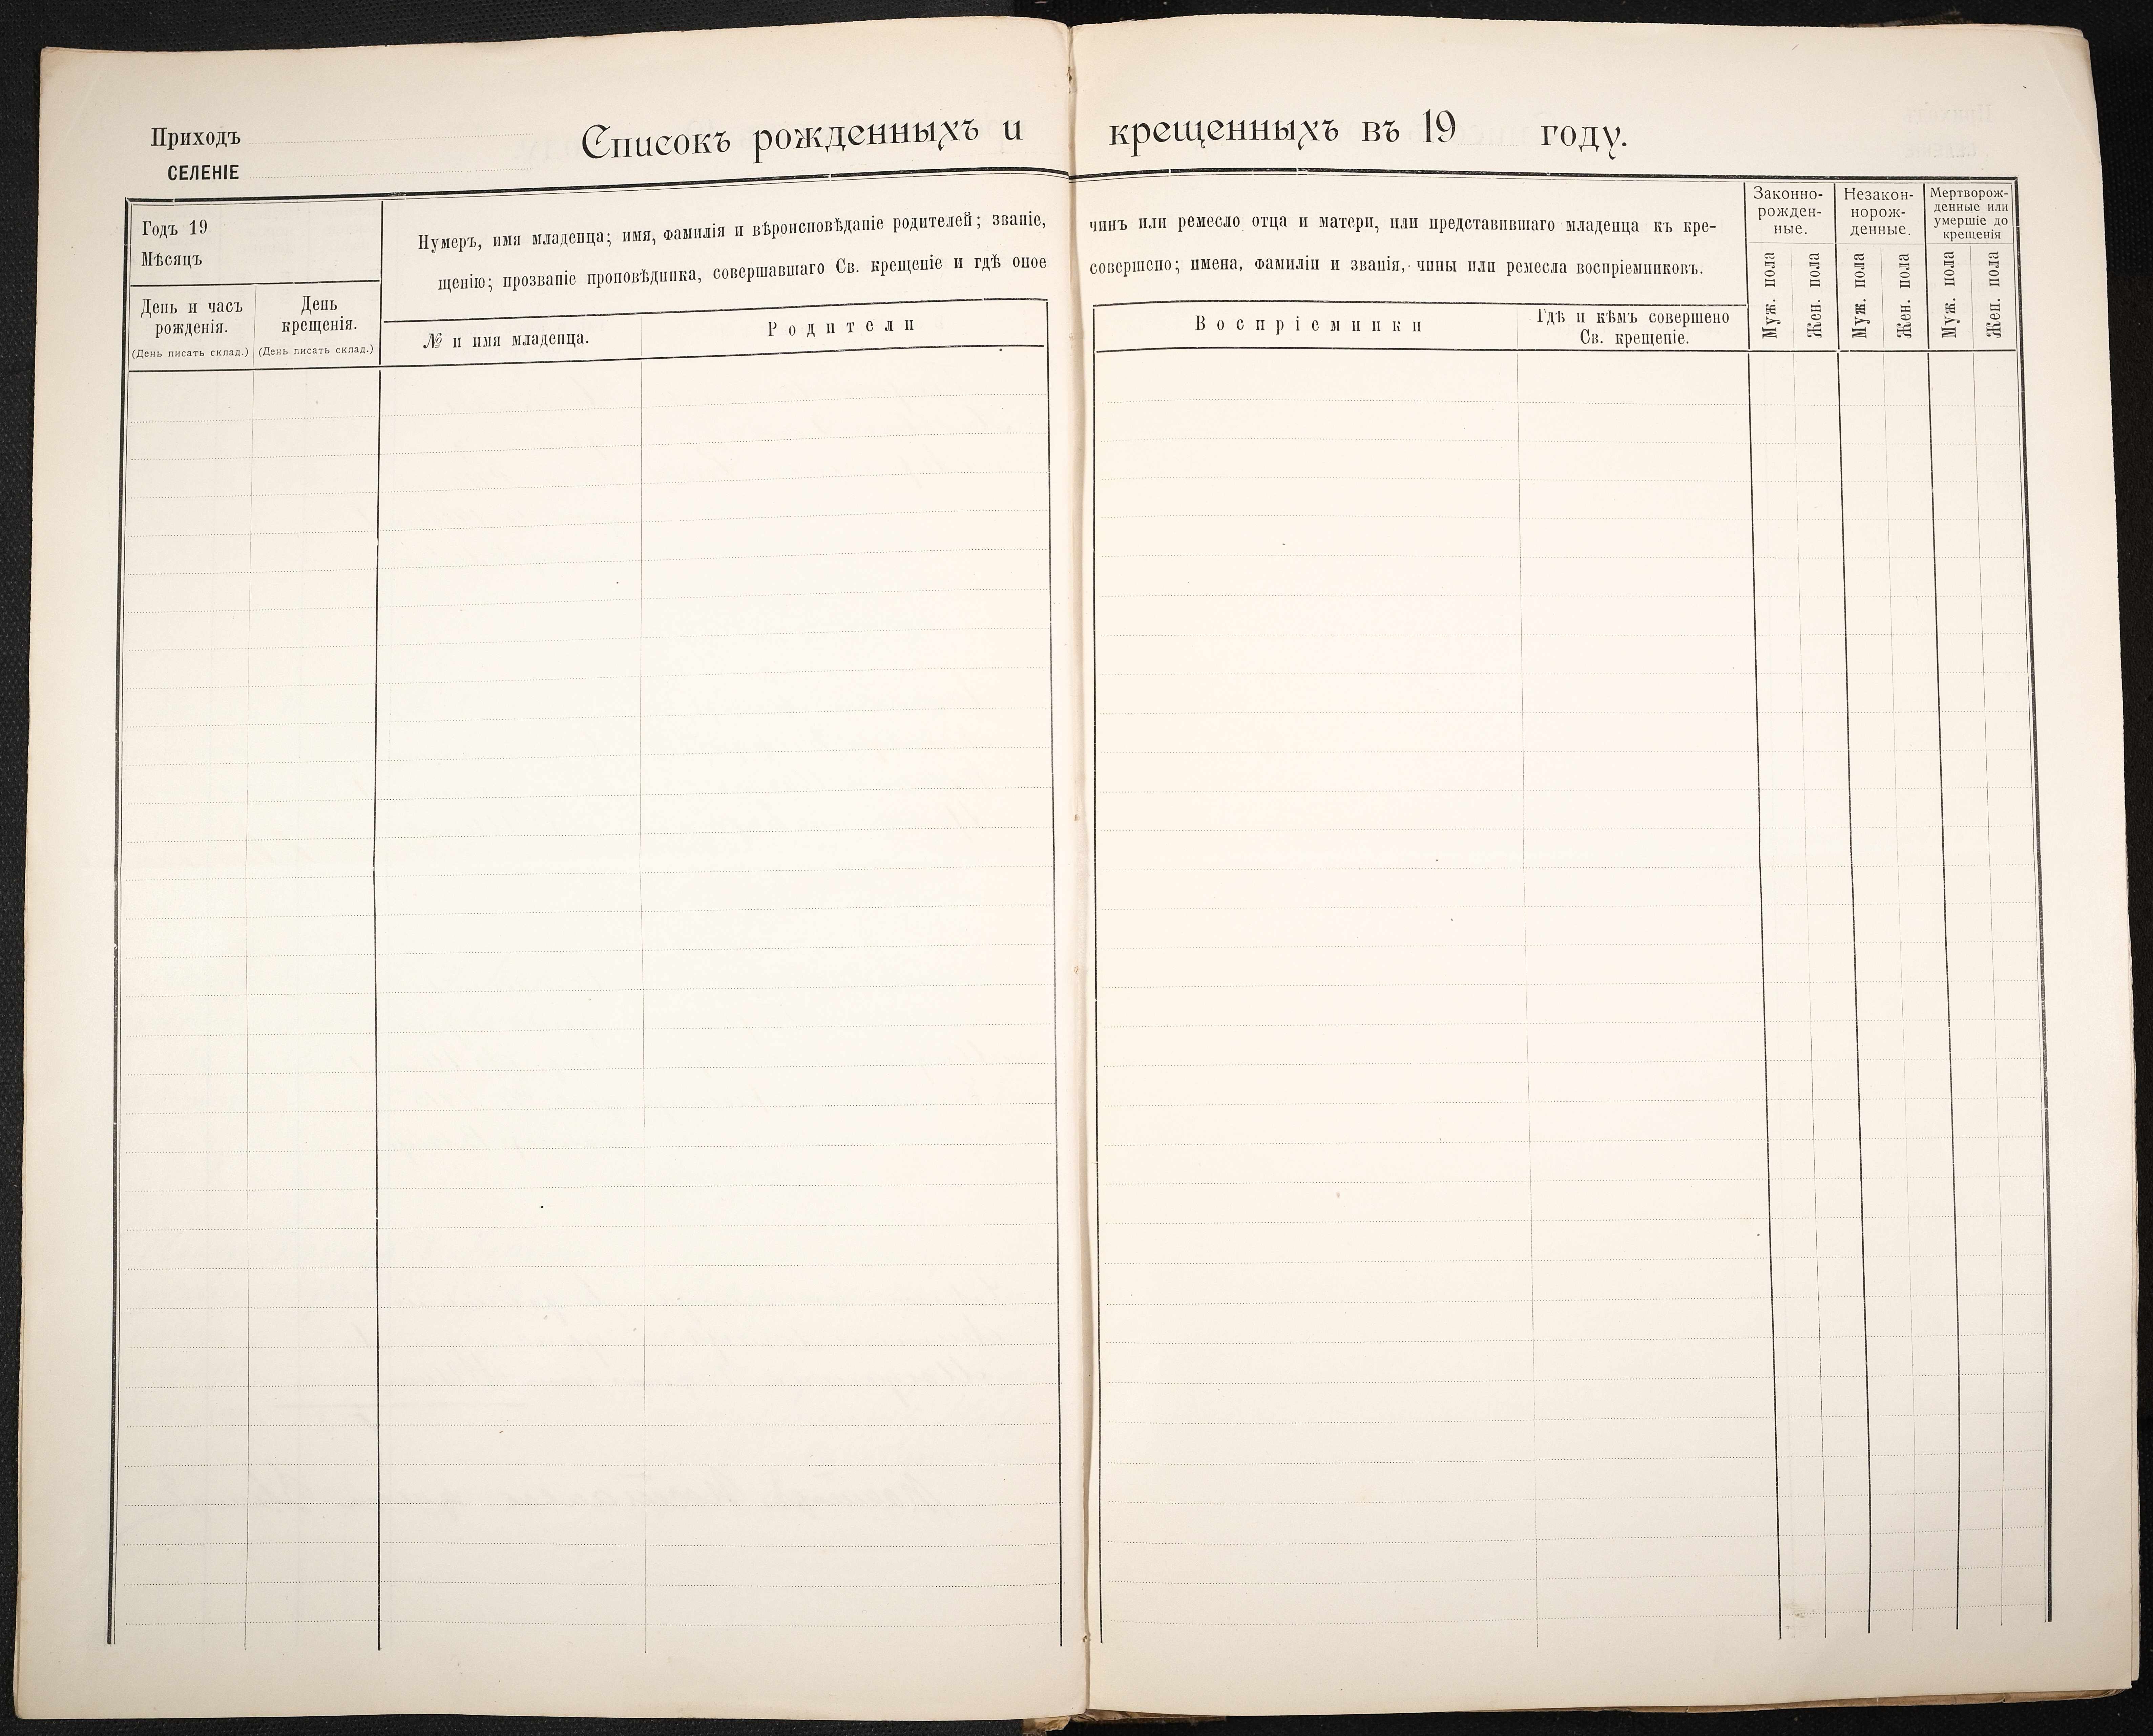 Приходъ
СЕЛЕНІЕ
Списокъ рожденныхъ и крещенныхъ въ 19 году.
Годъ 19
Мѣсяцъ
День и часъ
рожденія.
(День писать склад.)
День
крещенія.
(День писать склад.)
Нумеръ, имя младенца; имя, фамилія и вѣроисповѣданіе родителей; званіе, чинъ или ремесло отца и матери, или представившаго младенца къ кре-
щенію; прозваніе проповѣдника, совершавшаго Св. крещеніе и гдѣ оное совершено; имена, фамиліи и званія, чины или ремесла воспріемниковъ.
№ и имя младенца.
Родители
Воспріемники
Гдѣ и кѣмъ совершено
Св. крещеніе.
Законно-
рожден-
ные.
Муж. пола
Жен. пола
Незакон-
норож-
денные.
Муж. пола
Жен. пола
Мертворож-
денные или
умершіе до
крещенія
Муж. пола
Жен. пола